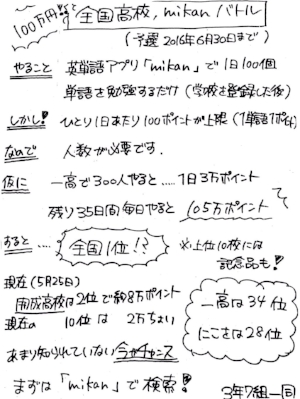 100万円!!
全国高校, mikan バトル
(予選 2016年6月30日まで)
やること 英単語アプリ「mikan」で1日100個
単語を勉強するだけ (学校を登録した後)
しかし! ひとり1日あたり100ポイントが上限 (1単語1ポイント)
なので 人数が必要です.
仮に 一高で300人やると..... 1日3万ポイント
残り35日間毎日やると 105万ポイント
すると..... 全国1位!?
※上位10校には
記念品も!
現在 (5月25日)
開成高校は2位で約8万ポイント
現在の 10位は 2万ちょい
一高は34位
にこさは28位
あまり知られていない今がチャンス
まずは「mikan」で検索!
3年7組一同